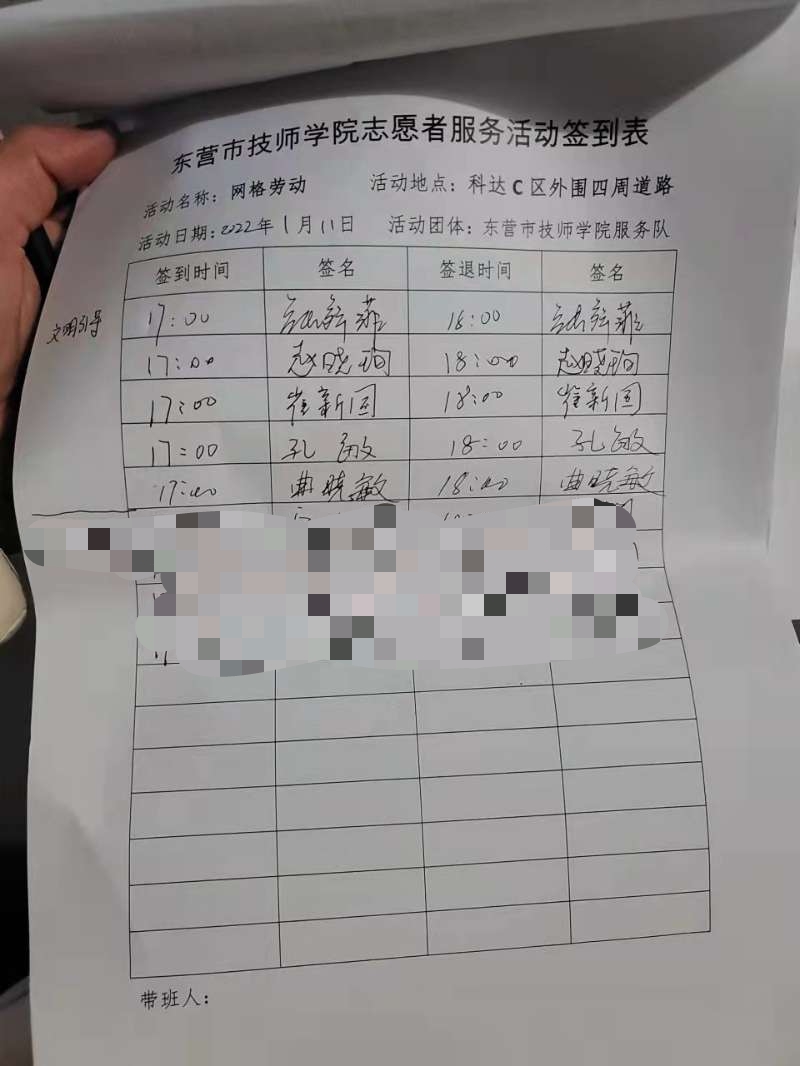 东营市技师学院志愿者服务活动签到表
活动名称：网格劳动 活动地点：科达C区外围四周道路
活动日期：2022年1月11日 活动团体：东营市技师学院服务队
签到时间 签名 签退时间 签名
文明引导
17:00 18:00
17:00 赵晓珣 18:00 赵晓珣
17:00 崔新国 18:00 崔新国
17:00 孔敏 18:00 孔敏
17:00 曲晓敏 18:00 曲晓敏
带班人：